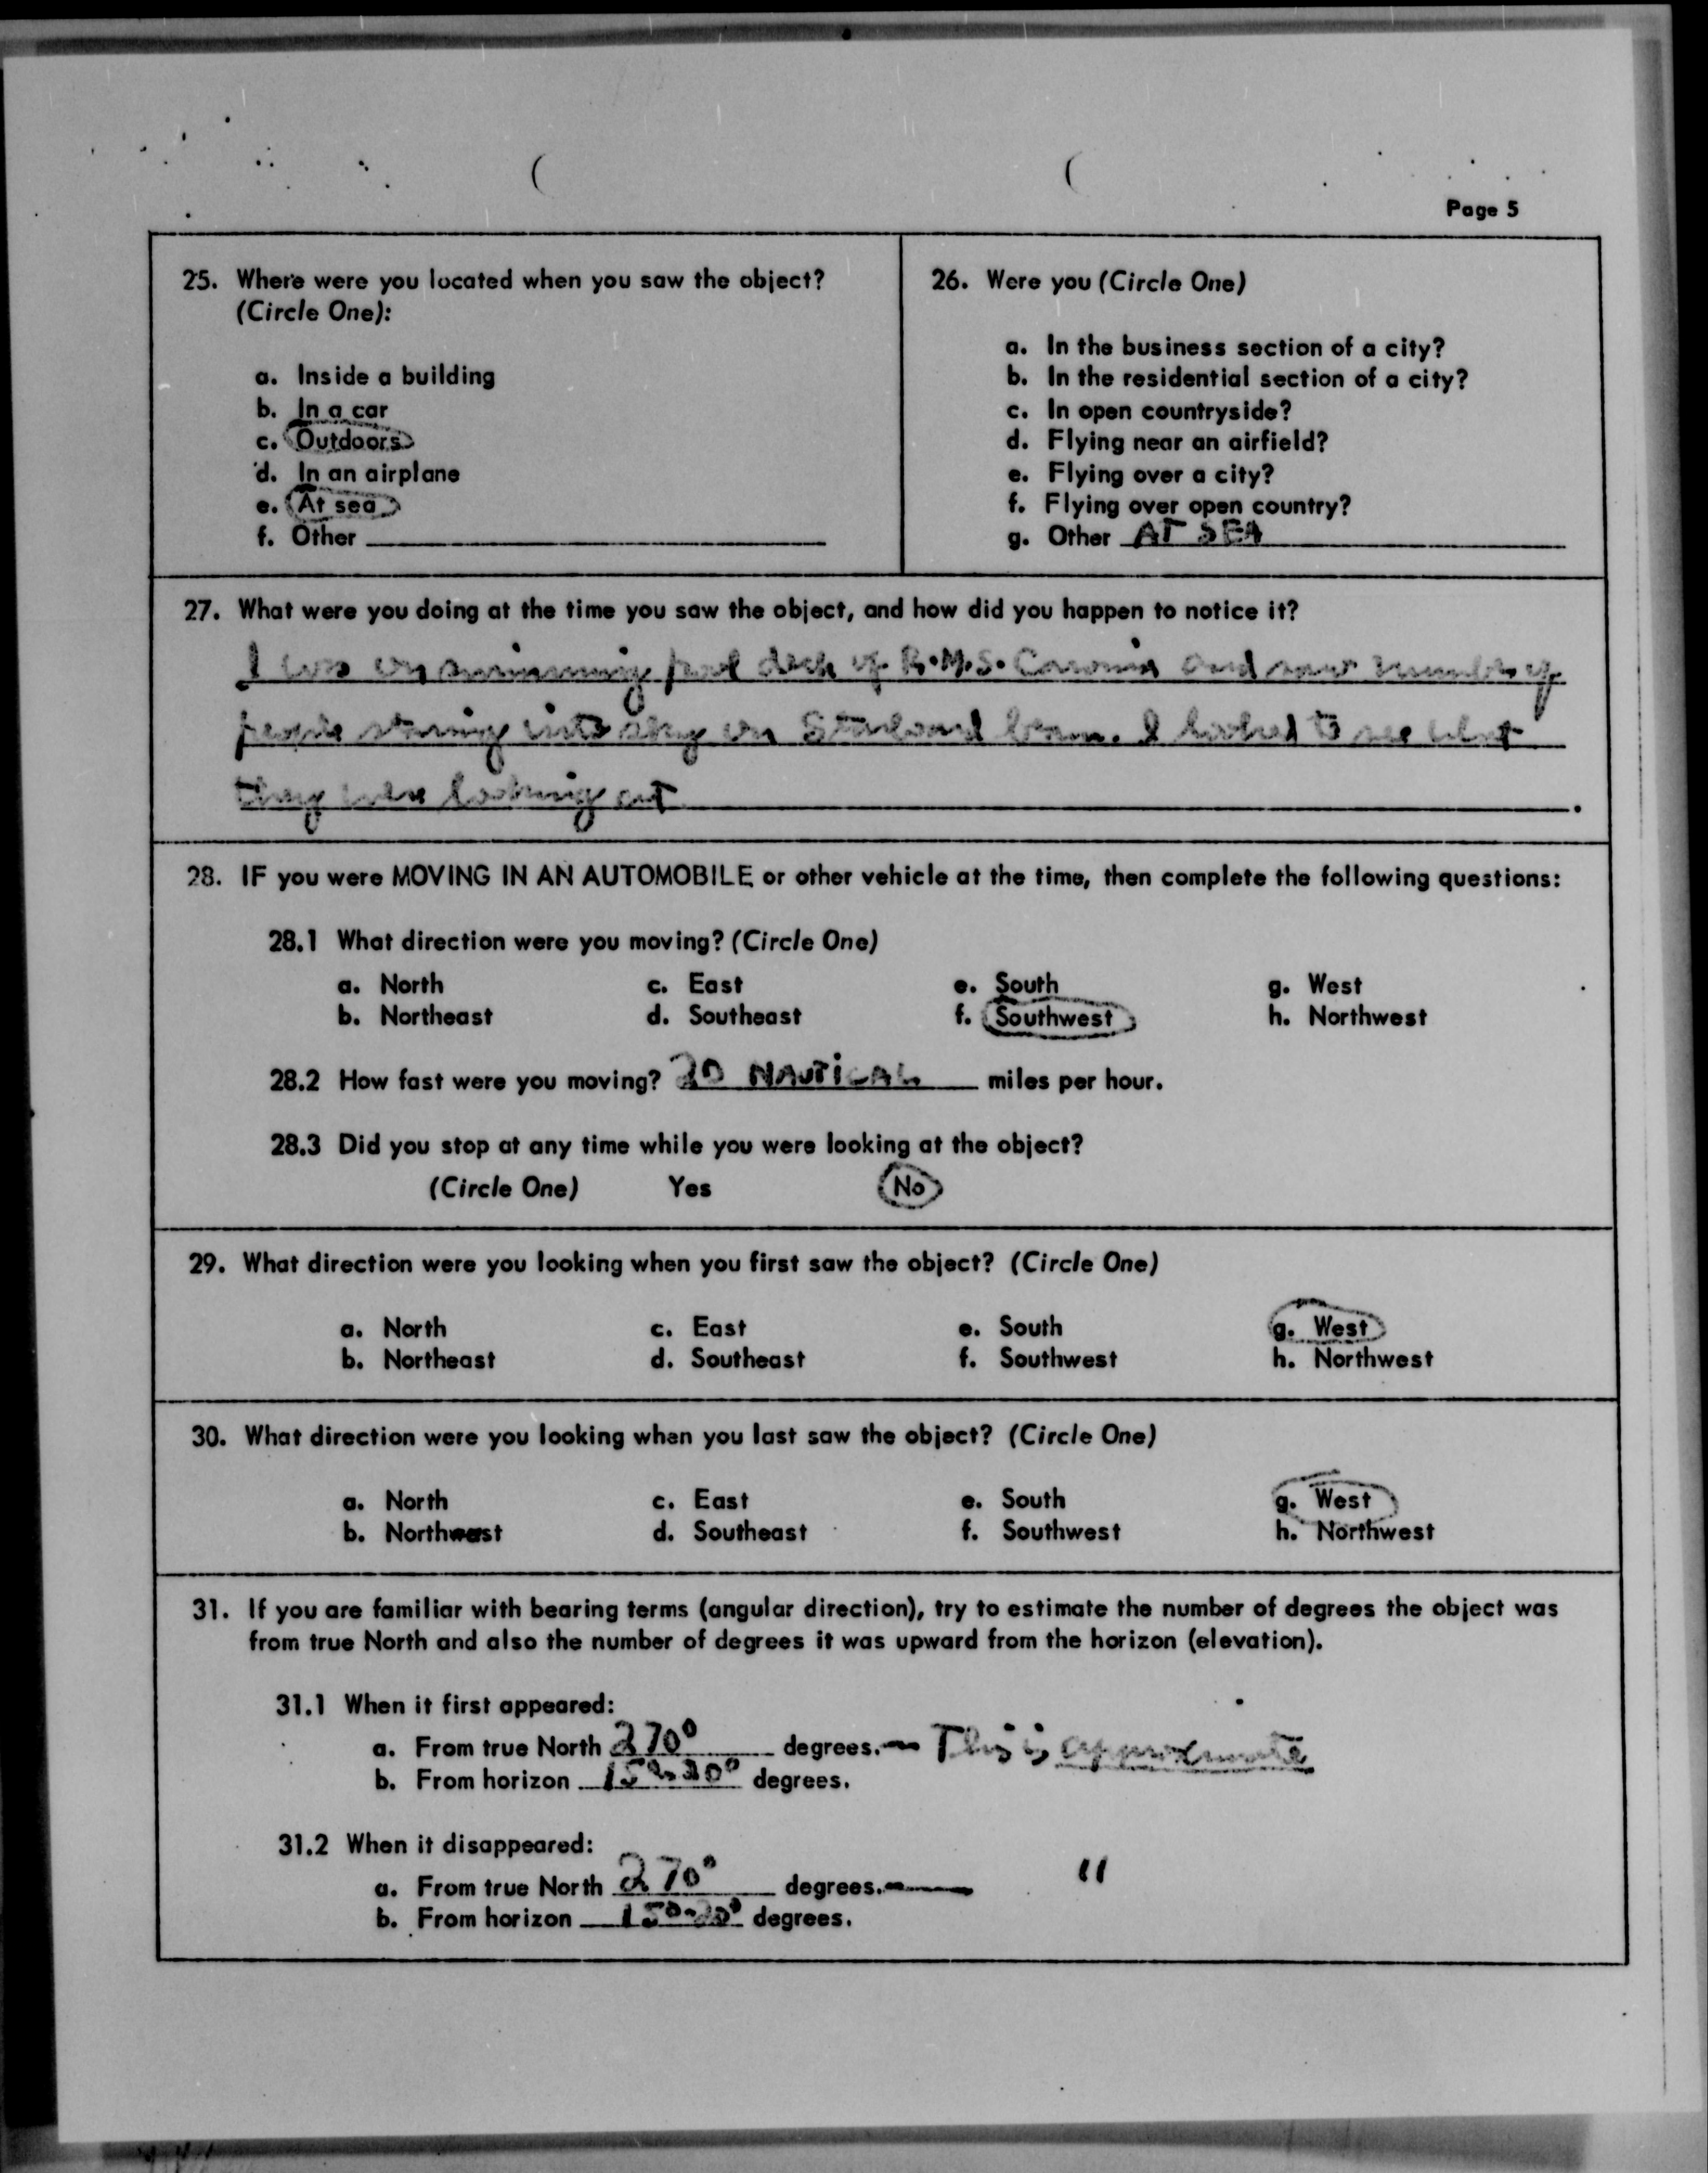 Page 5
25. Where were you located when you saw the object?
(Circle One):
a. Inside a building
b. In a car
c. Outdoors
d. In an airplane
e. At sea
f. Other
26. Were you (Circle One)
a. In the business section of a city?
b. In the residential section of a city?
c. In open countryside?
d. Flying near an airfield?
e. Flying over a city?
f. Flying over open country?
g. Other AT SEA
27. What were you doing at the time you saw the object, and how did you happen to notice it?
I was on swimming pool deck of R.M.S. Caronia and saw number of
people staring into sky on Starboard beam. I looked to see what
they were looking at
28. IF you were MOVING IN AN AUTOMOBILE or other vehicle at the time, then complete the following questions:
28.1 What direction were you moving? (Circle One)
a. North c. East e. South g. West
b. Northeast d. Southeast f. Southwest h. Northwest
28.2 How fast were you moving? 20 NAUTICAL miles per hour.
28.3 Did you stop at any time while you were looking at the object?
(Circle One) Yes No
29. What direction were you looking when you first saw the object? (Circle One)
a. North c. East e. South g. West
b. Northeast d. Southeast f. Southwest h. Northwest
30. What direction were you looking when you last saw the object? (Circle One)
a. North c. East e. South g. West
b. Northwest d. Southeast f. Southwest h. Northwest
31. If you are familiar with bearing terms (angular direction), try to estimate the number of degrees the object was
from true North and also the number of degrees it was upward from the horizon (elevation).
31.1 When it first appeared:
a. From true North 270° degrees. — This is approximate
b. From horizon 15°-20° degrees.
31.2 When it disappeared:
a. From true North 270° degrees. — "
b. From horizon 15°-20° degrees.